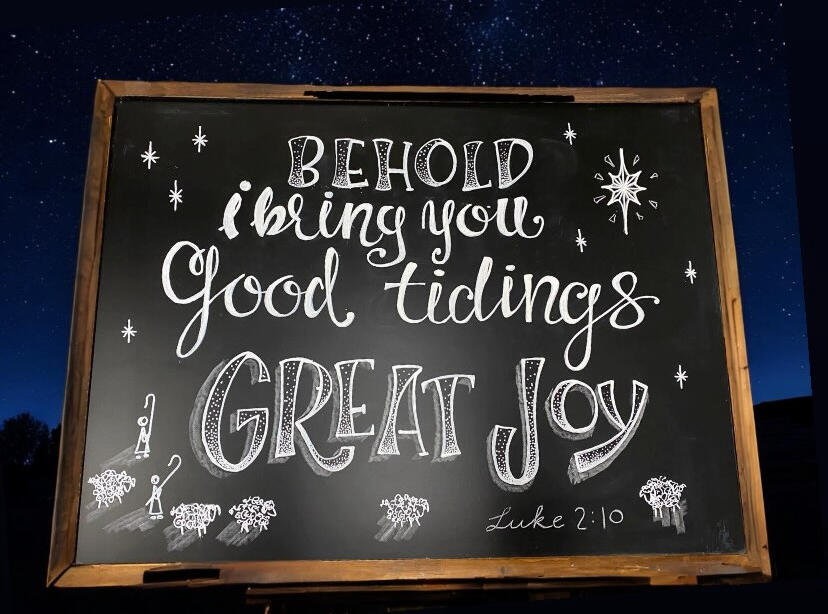 BEHOLD
i bring you
Good tidings
GREAT JOY
Luke 2:10